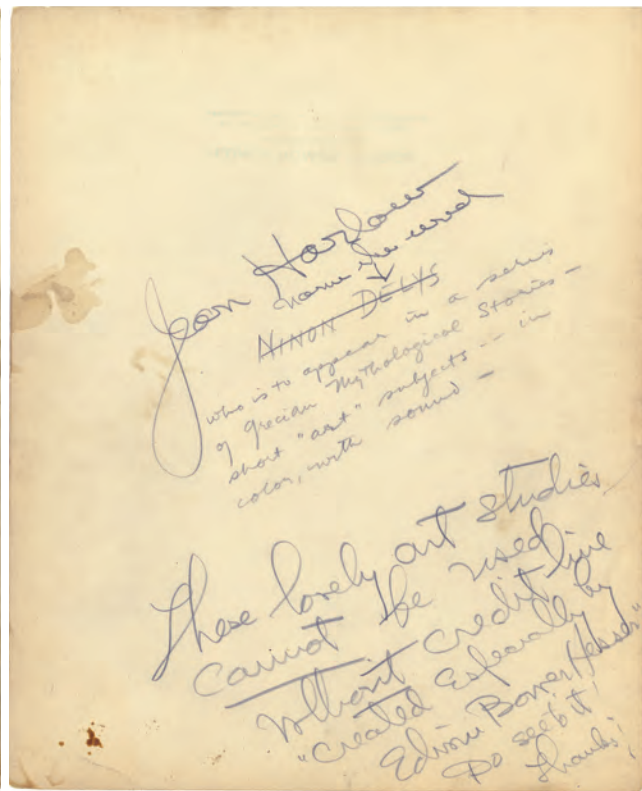 Jean Harlow
name she used
NINON DELYS
who is to appear in a series
of Grecian Mythological Stories -
short "art" subjects -- in
color, with sound -
These lovely art studies
cannot be used
without credit line
"Created Especially by
Edwin Bower Hesser"
Do see to it!
Thanks!